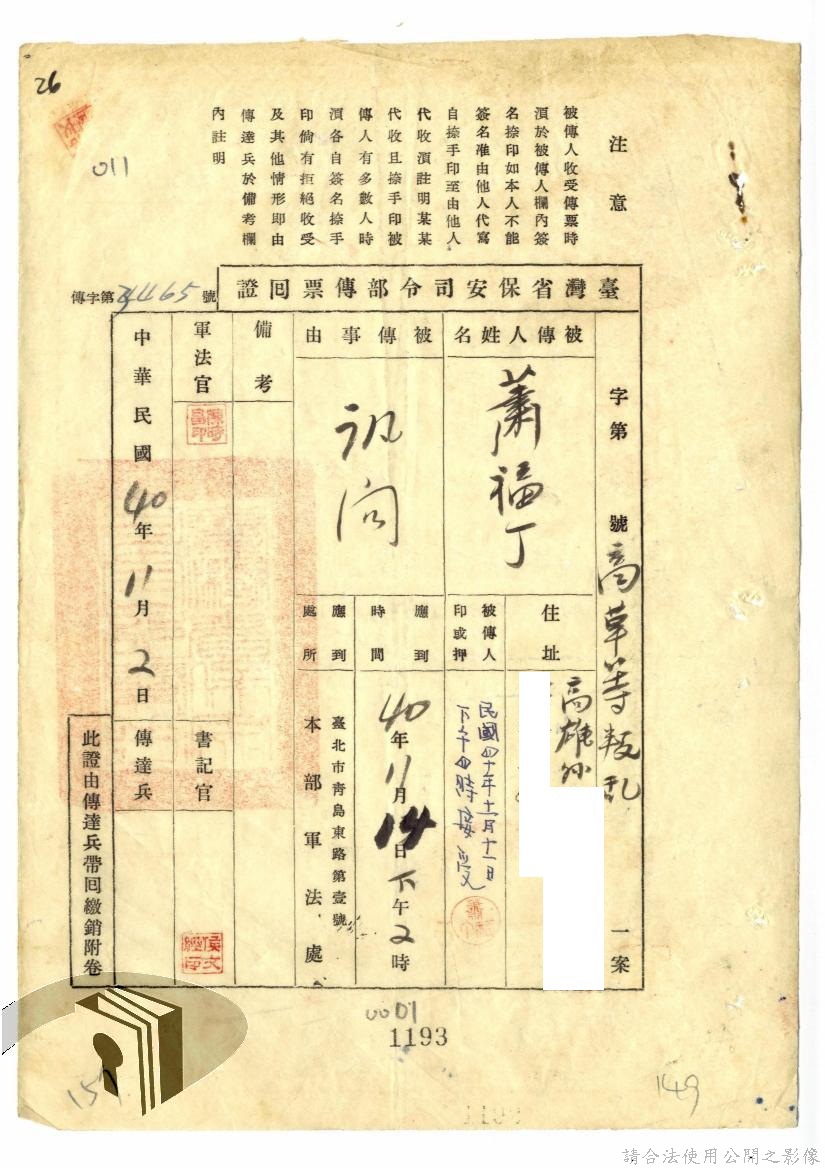 26
011
注意
被傳人收受傳票時
須於被傳人欄內簽
名捺印如本人不能
簽名准由他人代寫
自捺手印至由他人
代收須註明某某
代收且捺手印被
傳人有多數人時
須各自簽名捺手
印倘有拒絕收受
及其他情形即由
傳達兵於備考欄
內註明
臺灣省保安司令部傳票回證
傳字第3465號
字第 號高草等叛乱一案
被傳人姓名
蕭福丁
住址
高雄
被傳人印或押
民國四十年十一月十一日
下午四時接受
被傳事由
訊問
應到時間
40年11月14日下午2時
應到處所
臺北市青島東路第壹號
本部軍法處
備考
軍法官
書記官
侯文經印
中華民國40年11月2日
傳達兵
此證由傳達兵帶回繳銷附卷
0001
1193
149
請合法使用公開之影像